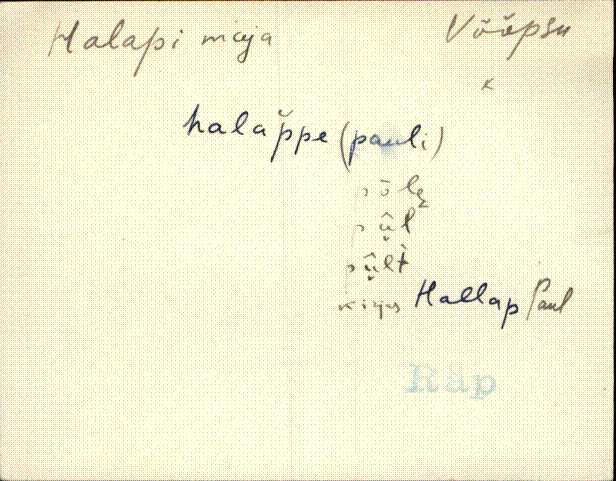 Halapi maja Võõpsu
k
halap̆pe (pauli)
põlɛ
pü̬̂l
pü̬̂lt
kirjas Hallap Paul
Räp